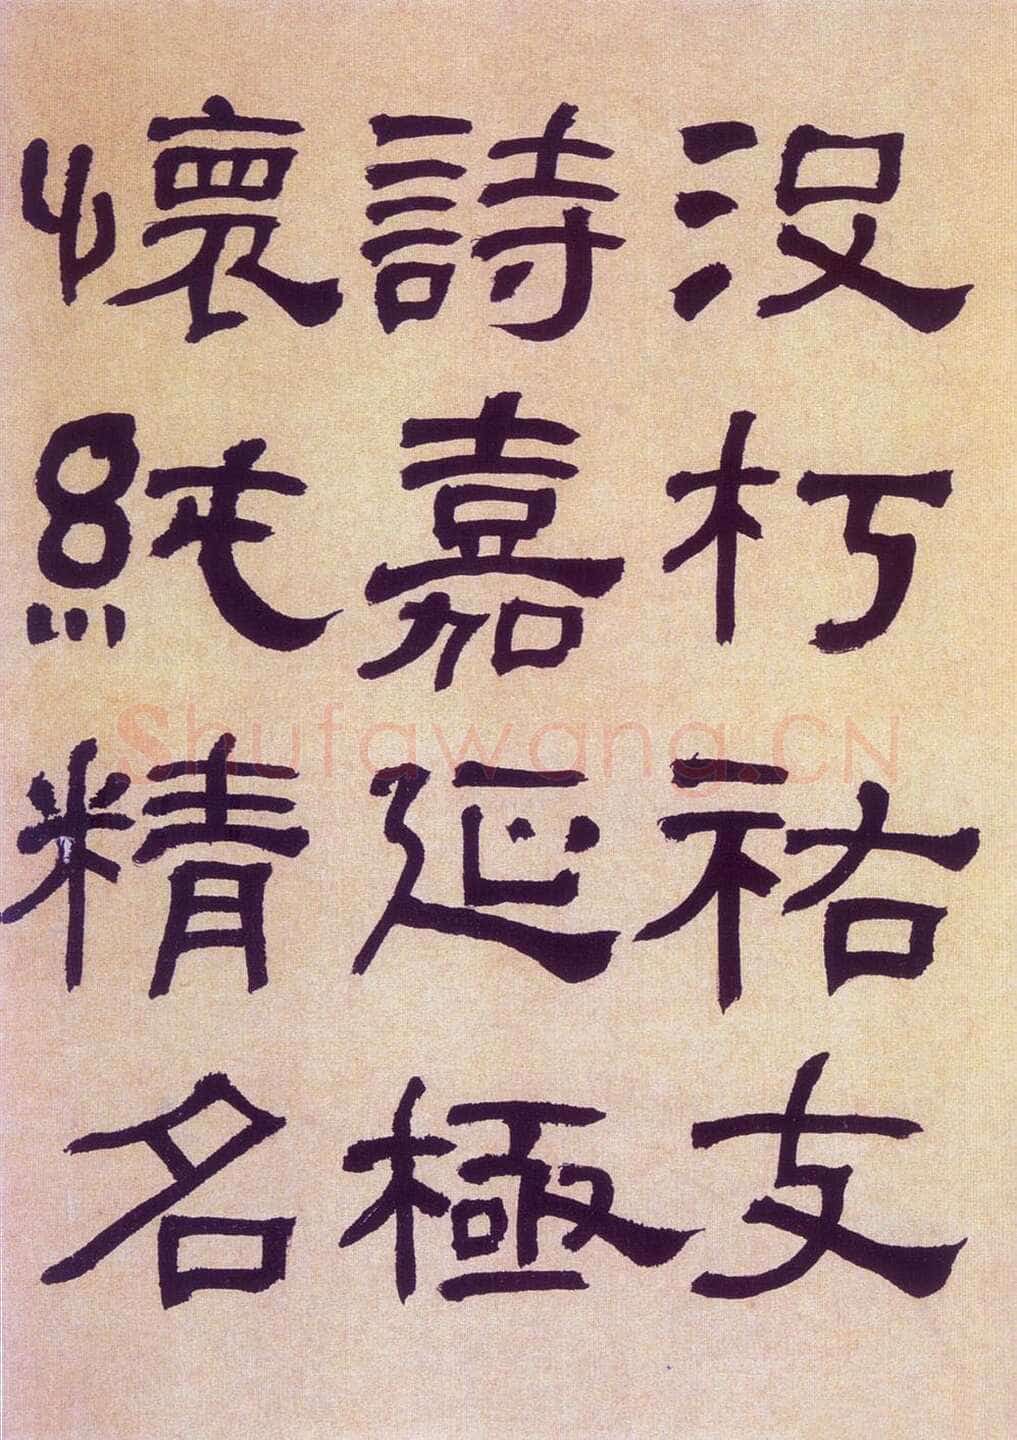 沒朽祐支
詩嘉延極
懷純精名
Shufawang.CN